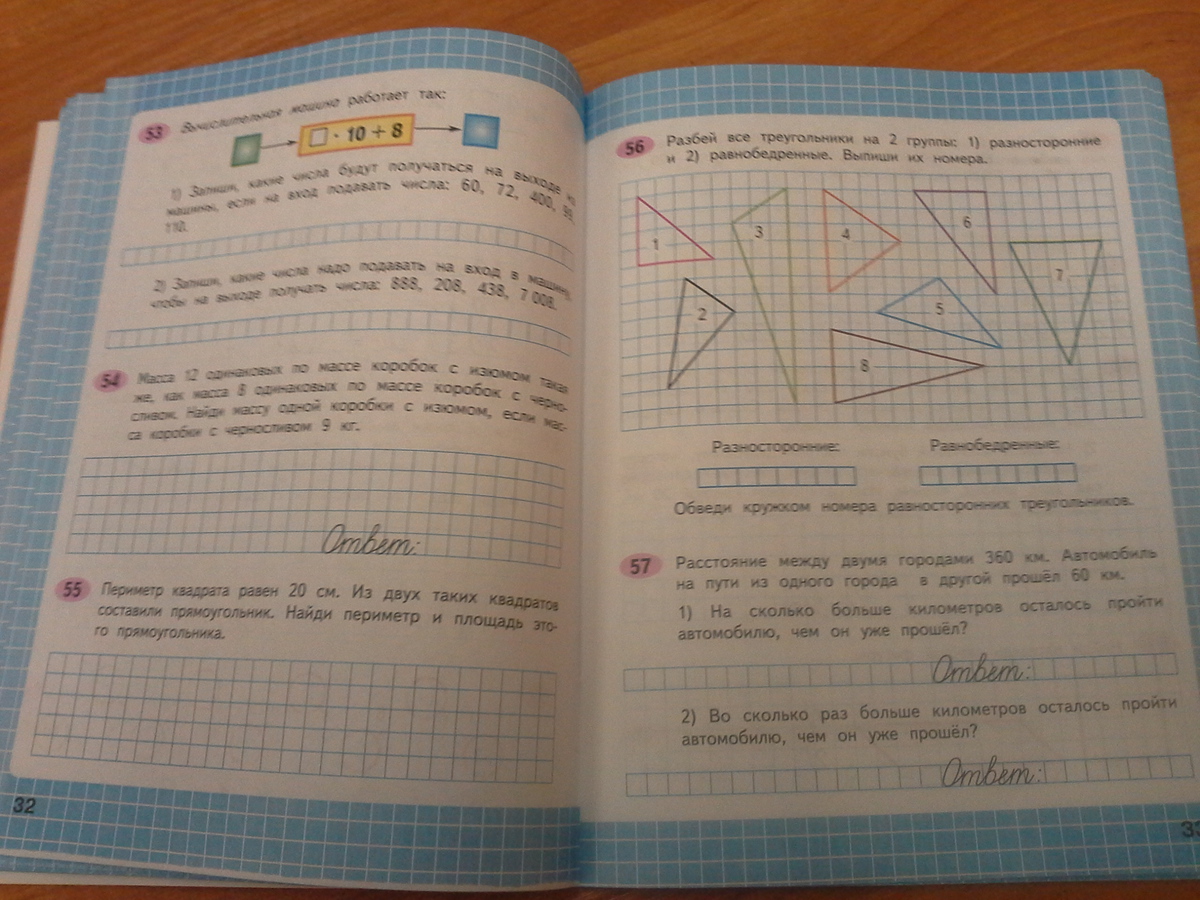 53 Вычислительная машина работает так:
□ · 10 + 8
1) Запиши, какие числа будут получаться на выходе из
машины, если на вход подавать числа: 60, 72, 400, 99,
110.
2) Запиши, какие числа надо подавать на вход в машину,
чтобы на выходе получать числа: 888, 208, 438, 7 008.
54 Масса 12 одинаковых по массе коробок с изюмом такая
же, как масса 8 одинаковых по массе коробок с черно-
сливом. Найди массу одной коробки с изюмом, если мас-
са коробки с черносливом 9 кг.
Ответ:
55 Периметр квадрата равен 20 см. Из двух таких квадратов
составили прямоугольник. Найди периметр и площадь это-
го прямоугольника.
32
56 Разбей все треугольники на 2 группы: 1) разносторонние
и 2) равнобедренные. Выпиши их номера.
1 2 3 4 5 6 7 8
Разносторонние: Равнобедренные:
Обведи кружком номера разносторонних треугольников.
57 Расстояние между двумя городами 360 км. Автомобиль
на пути из одного города в другой прошёл 60 км.
1) На сколько больше километров осталось пройти
автомобилю, чем он уже прошёл?
Ответ:
2) Во сколько раз больше километров осталось пройти
автомобилю, чем он уже прошёл?
Ответ:
33